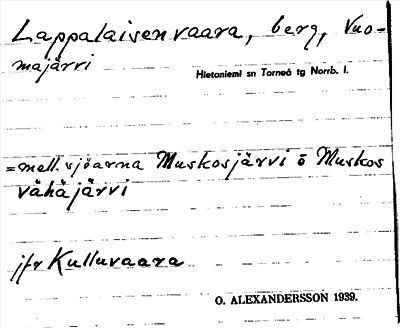 Lappalaisenvaara, berg, Vuo-
majärvi
Hietaniemi sn Torneå tg Norrb. l.
= mell. sjöarna Muskosjärvi o Muskos
vähäjärvi
jfr Kulluvaara
O. ALEXANDERSSON 1939.